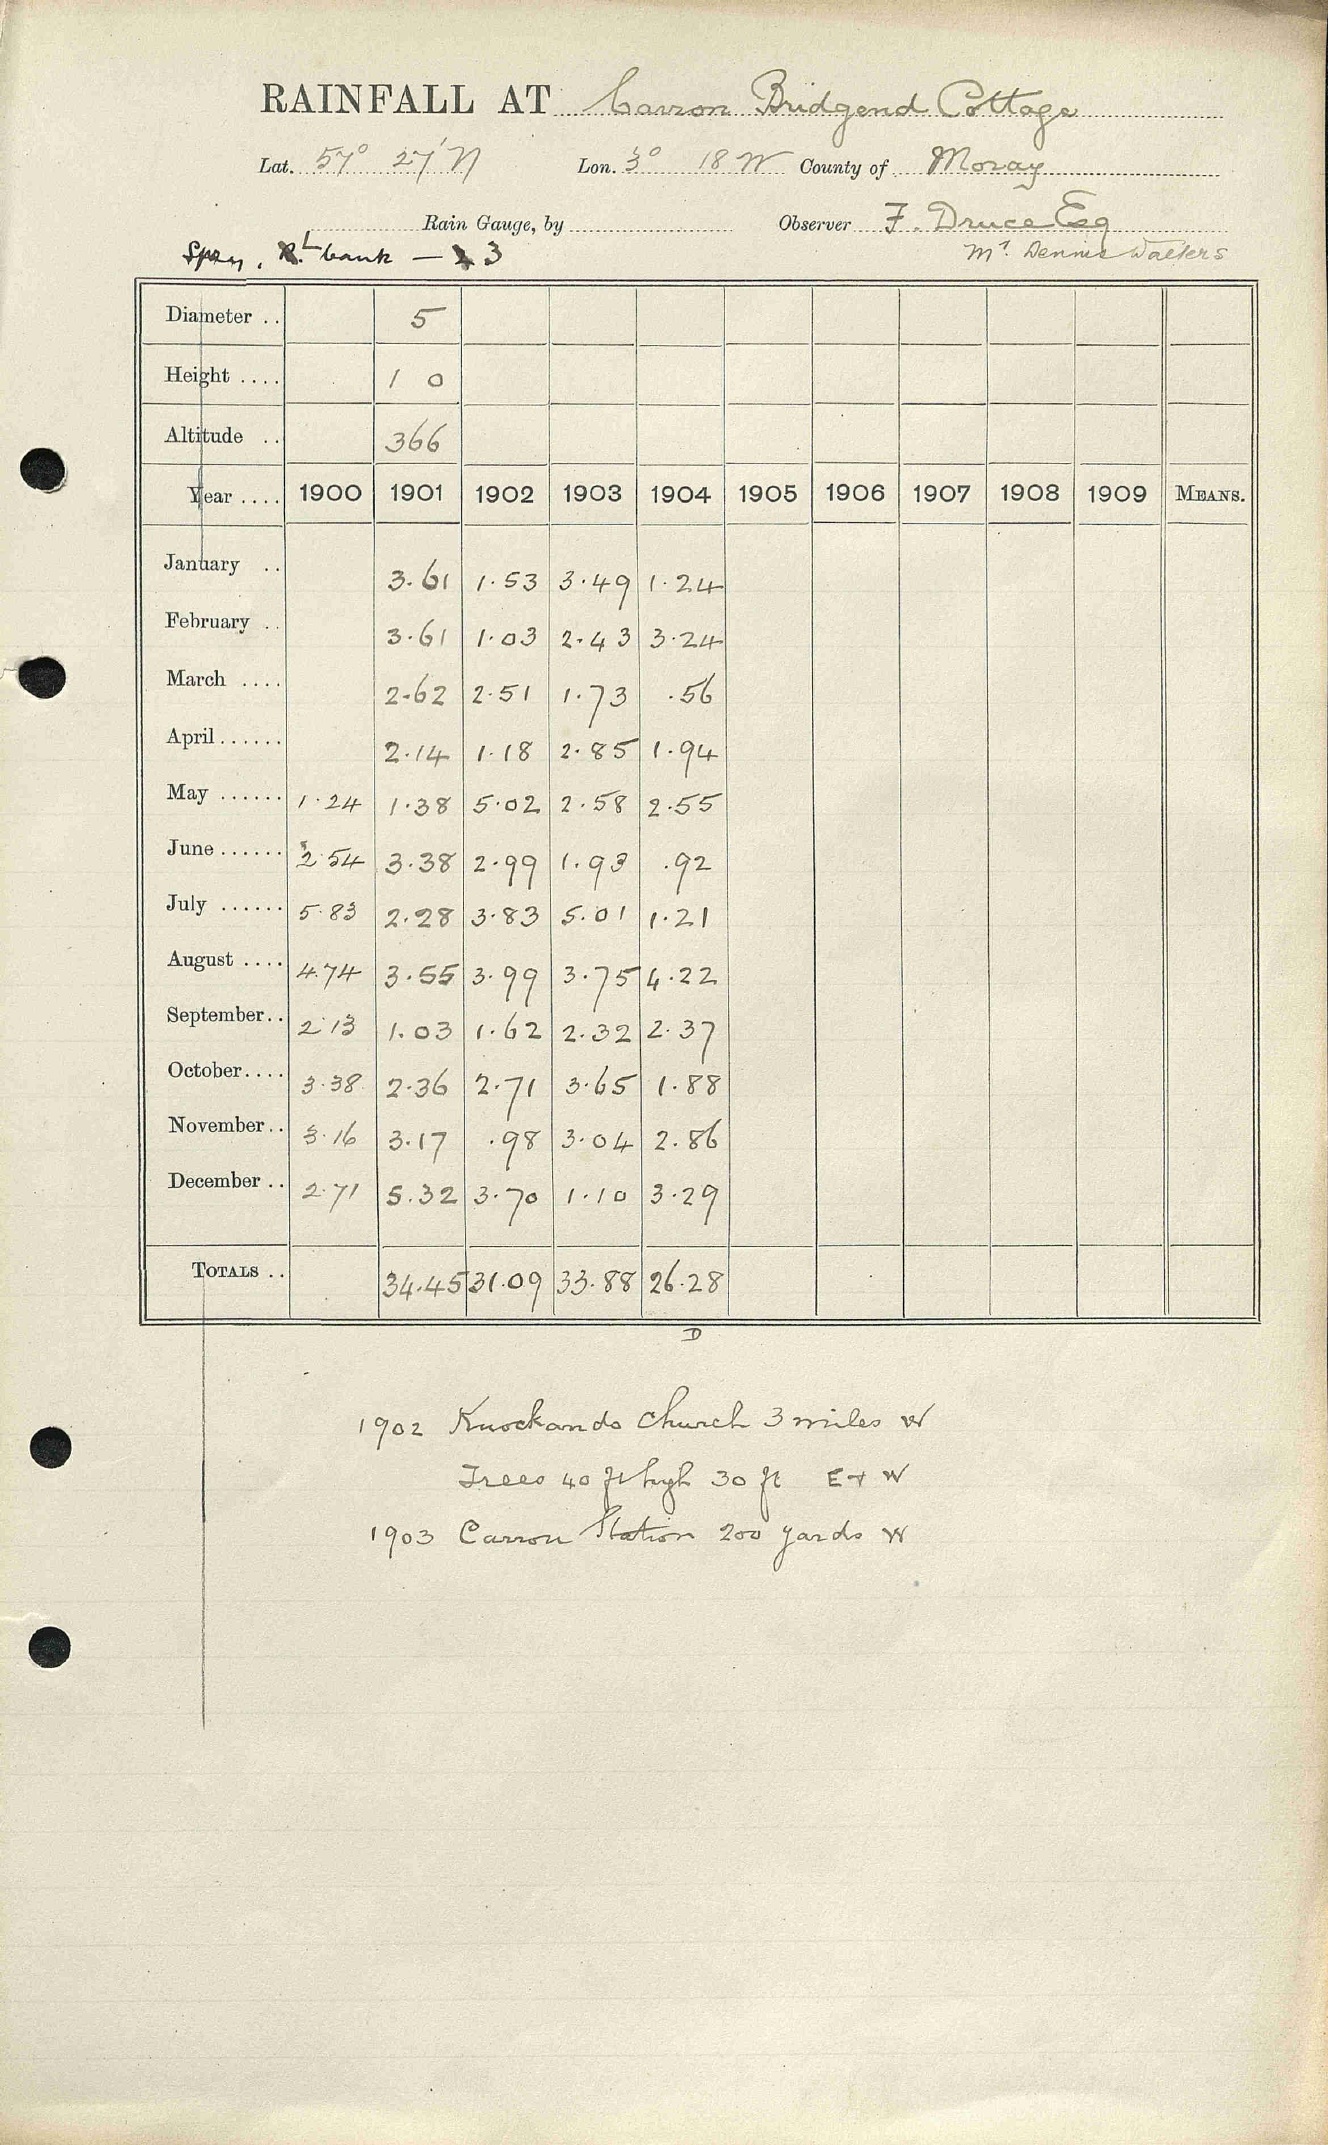 RAINFALL AT Carron Bridgend Cottage
Lat. 57° 27' N Lon. 3° 18 W County of Moray
Rain Gauge, by Observer F. Druce Esq
Spey, L. bank — 3 Mr. Dennis Walters
Diameter .. 5
Height .... 1 0
Altitude .. 366
Year .... 1900 1901 1902 1903 1904 1905 1906 1907 1908 1909 MEANS.
January .. 3.61 1.53 3.49 1.24
February .. 3.61 1.03 2.43 3.24
March .... 2.62 2.51 1.73 .56
April ...... 2.14 1.18 2.85 1.94
May ...... 1.24 1.38 5.02 2.58 2.55
June ...... 2.54 3.38 2.99 1.93 .92
July ...... 5.83 2.28 3.83 5.01 1.21
August .... 4.74 3.55 3.99 3.75 4.22
September .. 2.13 1.03 1.62 2.32 2.37
October .... 3.38 2.36 2.71 3.65 1.88
November .. 3.16 3.17 .98 3.04 2.86
December .. 2.71 5.32 3.70 1.10 3.29
TOTALS .. 34.45 31.09 33.88 26.28
D
1902 Knockando Church 3 miles W
Trees 40 ft high 30 ft E + W
1903 Carron Station 200 yards W